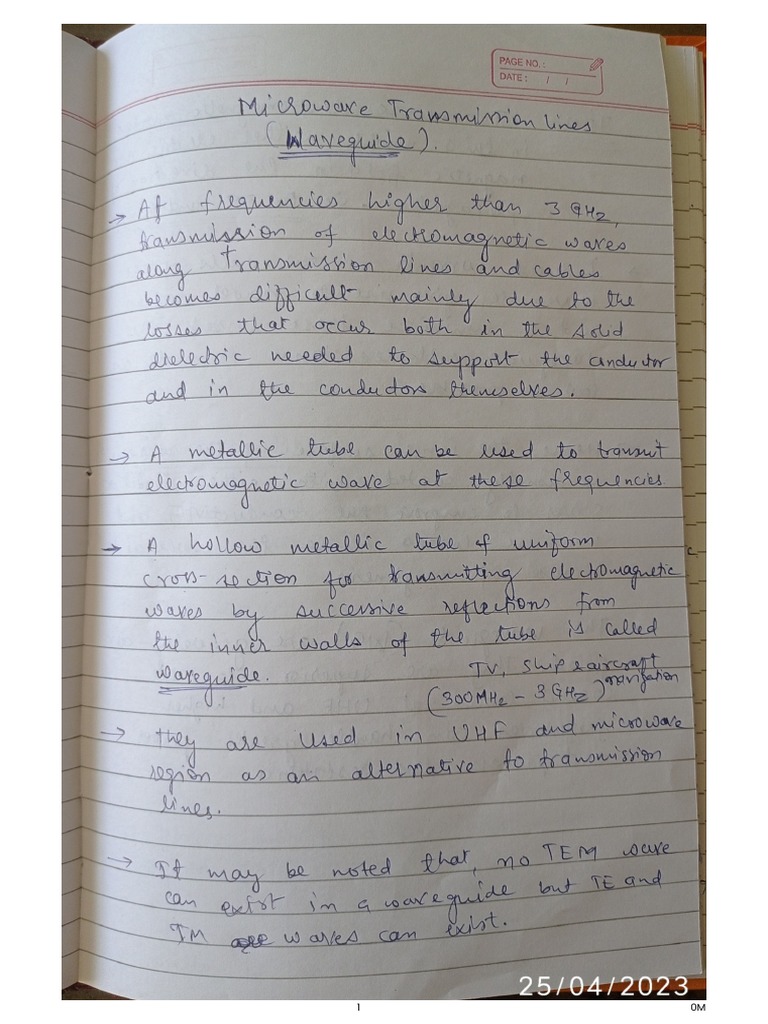 PAGE NO.:
DATE: / /
Microwave Transmission lines
(Waveguide).
→ At frequencies higher than 3 GHz,
transmission of electromagnetic waves
along Transmission lines and cables
becomes difficult mainly due to the
losses that occur both in the solid
dielectric needed to support the conductor
and in the conductors themselves.
→ A metallic tube can be used to transmit
electromagnetic wave at these frequencies
→ A hollow metallic tube of uniform
cross-section for transmitting electromagnetic
waves by successive reflections from
the inner walls of the tube is called
waveguide.
TV, ship & aircraft
(300MHz - 3 GHz) navigation
→ they are used in UHF and microwave
region as an alternative to transmission
lines.
→ It may be noted that, no TEM wave
can exist in a waveguide but TE and
TM waves can exist.
25/04/2023
1
0M